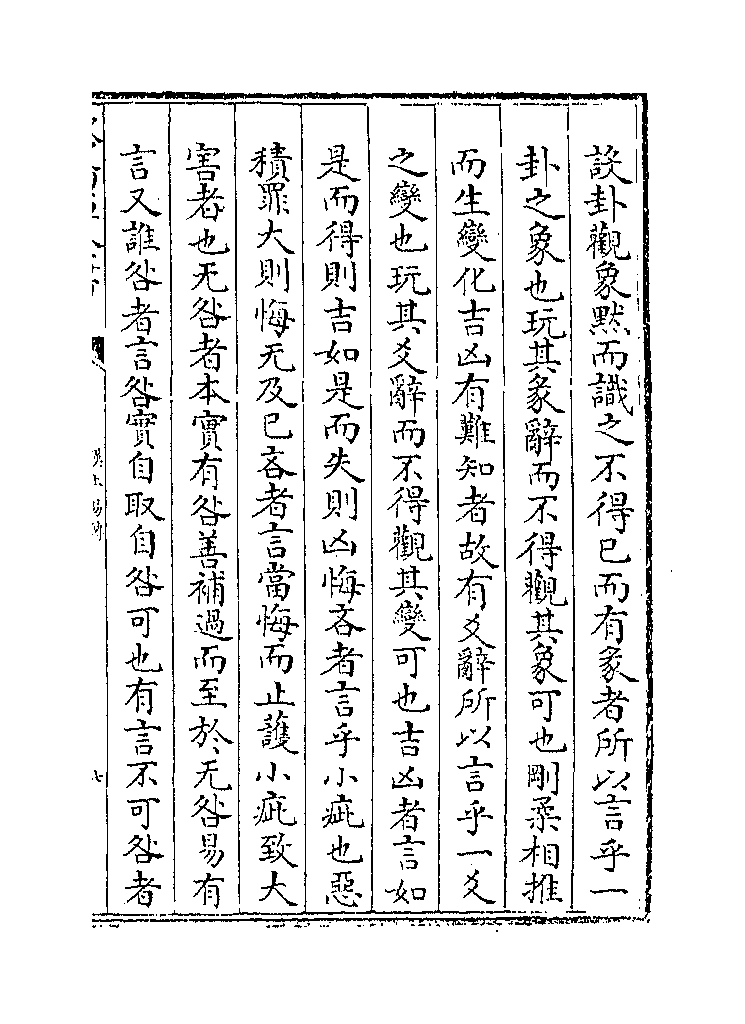 設卦觀象黙而識之不得已而有彖者所以言乎一
卦之象也玩其彖辭而不得觀其象可也剛柔相推
而生變化吉凶有難知者故有爻辭所以言乎一爻
之變也玩其爻辭而不得觀其變可也吉凶者言如
是而得則吉如是而失則凶悔吝者言乎小疵也惡
積罪大則悔无及已吝者言當悔而止護小疵致大
害者也无咎者本實有咎善補過而至於无咎易有
言又誰咎者言咎實自取自咎可也有言不可咎者
漢上易傳
七